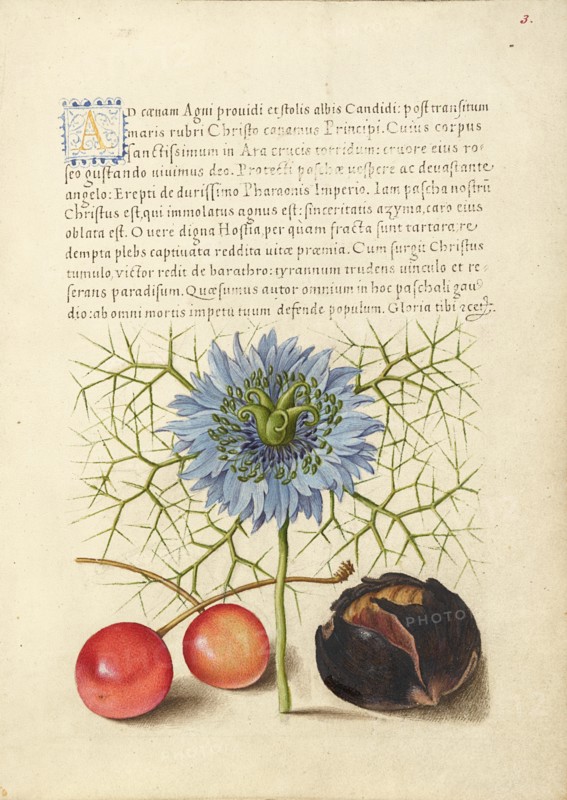 3.
AD cœnam Agni prouidi et stolis albis Candidi: post transitum
maris rubri Christo canamus Principi. Cuius corpus
sanctissimum in Ara crucis torridum: cruore eius ro=
seo gustando uiuimus deo. Protecti paschæ uespere ac deuastante
angelo: Erepti de durissimo Pharaonis Imperio. Iam pascha nostrũ
Christus est, qui immolatus agnus est: sinceritatis azyma, caro eius
oblata est. O uere digna Hostia, per quàm fracta sunt tartara, re
dempta plebs captiuata reddita uitæ præmia. Cum surgit Christus
tumulo, victor redit de barathro: tyrannum trudens uinculo et re=
serans paradisum. Quæsumus autor omnium in hoc paschali gau
dio: ab omni mortis impetu tuum defende populum. Gloria tibi &c.
PHOTO